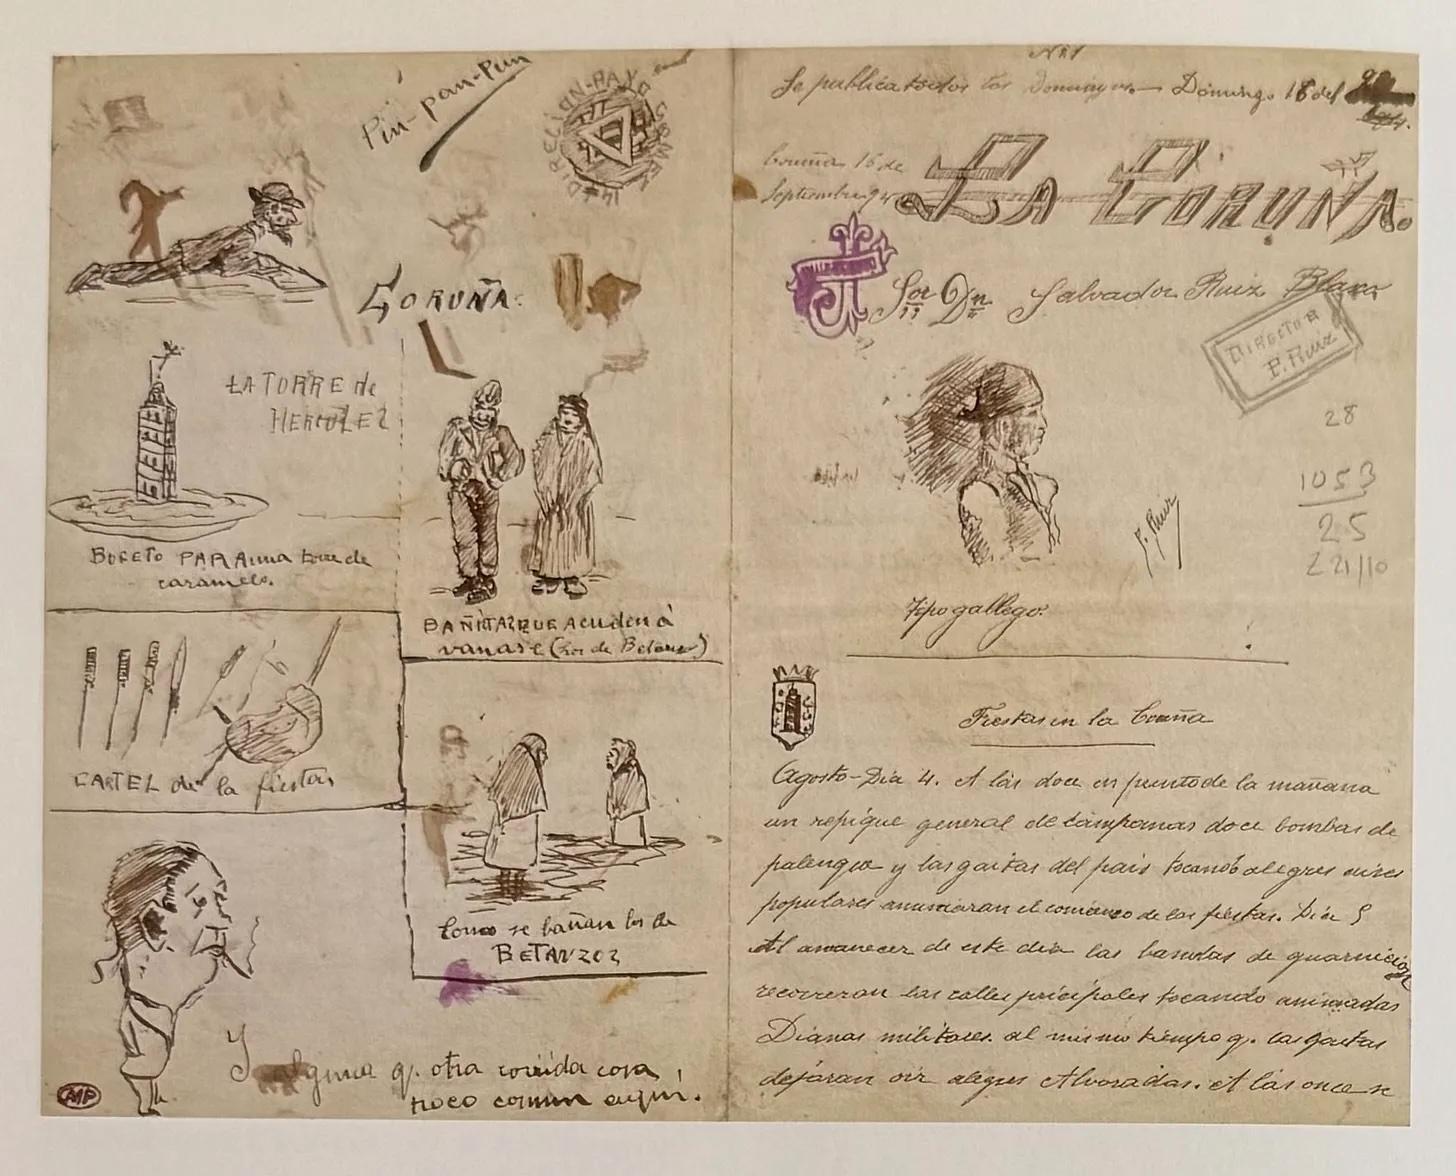 Pin-pan-Pun
DIRECCION-PAYO GOMEZ 14
CORUÑA.
LA TORRE de
HERCULEZ
BOCETO PARA una torre de
caramelo.
BAÑISTAS QUE Acuden á
vanarse (Los de Betanz)
CARTEL de la fiestas
Como se bañan los de
BETANZOZ
Y alguna q. otra corrida cosa
poco comun aquí.
MP
Nº 1
Se publica todos los Domingos.— Domingo 16 del
Coruña 16 de
Septiembre 94
LA CORUÑA.
Sor Dn Salvador Ruiz Blasco
DIRECTOR
P. Ruiz
28
1053
25
221/10
P. Ruiz
Tipo gallego.
Fiestas en la Coruña
Agosto-Dia 4. A las doce en punto de la mañana
un repique general de campanas doce bombas de
palenque y las gaitas del pais tocando alegres aires
populares anunciaran el comienzo de las fiestas. Dia 5
Al amanecer de este dia las bandas de guarnición
recorreran las calles principales tocando animadas
Dianas militares. al mismo tiempo q. las gaitas
dejaran oir alegres Alvoradas. A las once se